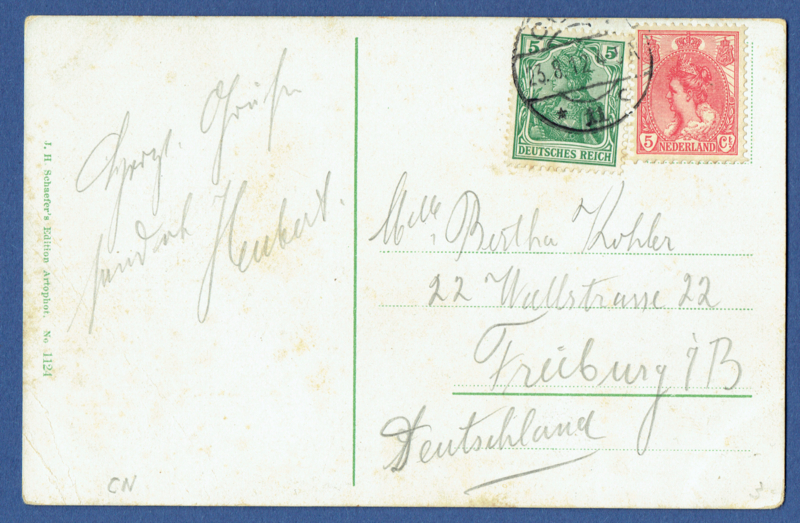 Herzl. Grüße
sendet Herbert.
J. H Schaefer's Edition Artophot. No 1124
CN
5 5
DEUTSCHES REICH
25.8.12
* 11 c
5 Ct
NEDERLAND
Melle, Bertha Kohler
22 Wallstrasse 22
Freiburg i/B
Deutschland